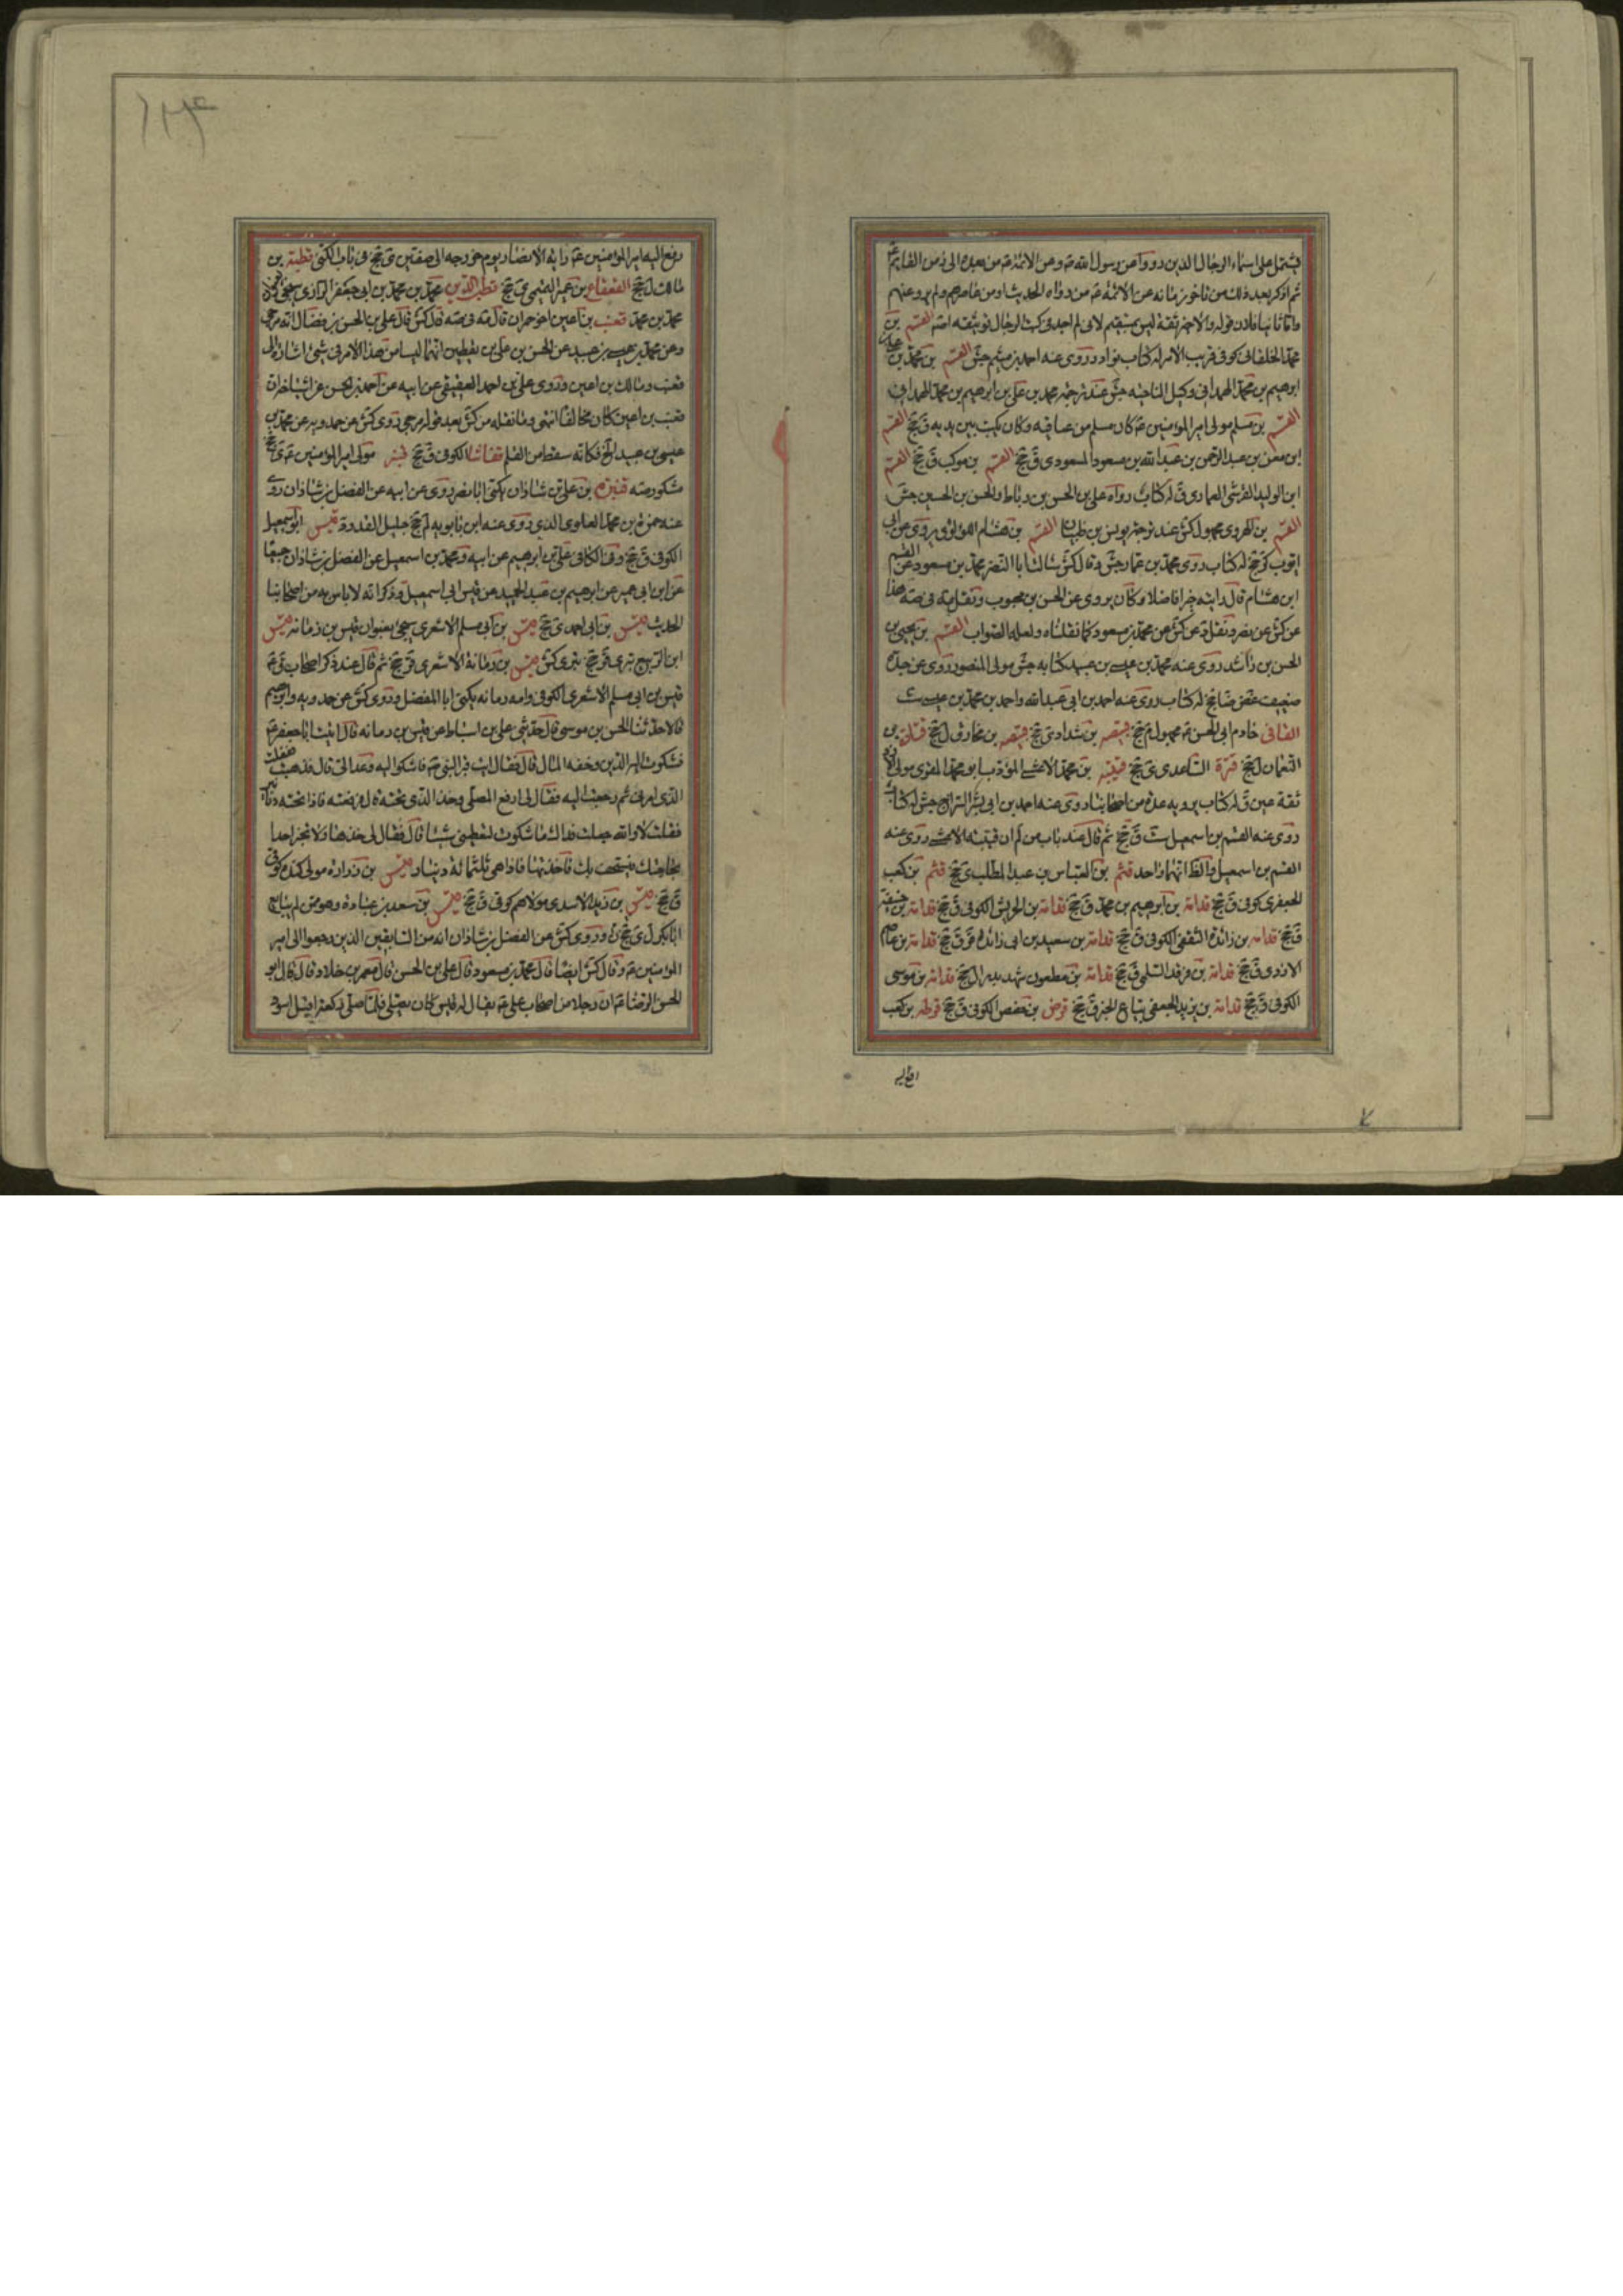 يشتمل على اسماء الرجال الذين رووا عن رسول الله ص وعن الائمة ع من بعده الى زمن القايم ع
ثم اذكر بعد ذلك من تاخر زمانه عن الائمة ع من رواه الحديث او من عاصرهم ولم يرو عنهم
واما ثانيا فلان قوله والاخر ثقة ليس بمستقيم لانى لم اجد فى كتب الرجال توثيقه اصلا القسم بن
محمد الخلقانى كوفى قريب الامر له كتاب نوادر روى عنه احمد بن ميثم جش القسم بن محمد بن على بن
ابرهيم بن محمد الهمدانى وكيل الناحيه جش عند ترجمه محمد بن على بن ابرهيم بن محمد الهمدانى
القسم بن مسلم مولى امير المؤمنين ع كان مسلم من وكان يكتب بين يديه ق جخ القسم
ابن معن بن عبد الرحمن بن عبد الله بن مسعود المسعودى ق جخ القسم بن موكب ق جخ القسم
ابن الوليد القرشى العمارى ق له كتاب رواه على بن الحسن بن رباط والحسن بن الحسين جش
القسم بن الهروى مجهول كش عند ترجمه يونس بن ظبيان القسم بن هشام اللؤلؤى يروى عن ابى
ايوب كر جخ له كتاب روى محمد بن عمار جش وقال كش سالت ابا النضر محمد بن مسعود عن القسم
ابن هشام قال رايته خيرا فاضلا وكان يروى عن الحسن بن محبوب ونقل صه فى صه هذا
عن كش عن نصر ونقل د عن كش عن محمد بن مسعود كما نقلناه ولعله الصواب القسم بن يحيى بن
الحسن بن راشد روى عنه محمد بن عيسى بن عبيد كتابه جش مولى المنصور روى عن جده
ضعيف غض ضا جخ له كتاب روى عنه احمد بن ابى عبد الله واحمد بن محمد بن عيسى ست
خادم ابى الحسن ع مجهول م جخ قبيصه بن شداد ى جخ قبيصه بن مخارق ل جخ قتادة بن
النعمان ل جخ قرة الساعدى ى جخ قتيبه بن محمد الاعشى المؤدب ابو محمد المقرى مولى الازد
ثقة عين ق له كتاب يرويه عدة من اصحابنا روى عنه احمد بن ابى بشر السراج جش له كتاب
روى عنه القسم بن اسمعيل ست ق جخ ثم قال عند باب من لم ان قتيبه الاعشى روى عنه
القسم بن اسمعيل والظ انهما واحد قثم بن العباس بن عبد المطلب ى جخ قثم بن كعب
الجعفرى كوفى ق جخ قدامة بن ابرهيم بن محمد ق جخ قدامة بن الحريش الكوفى ق جخ قدامة بن
ق جخ قدامة بن زائدة الثقفى الكوفى ق جخ قدامة بن سعيد بن ابى زائدة قر ق جخ قدامة بن عاصم
الازدى ق جخ قدامة بن فرقد السلمى ق جخ قدامة بن مظعون شهد بدرا ل جخ قدامة بن موسى
الكوفى ق جخ قدامة بن يزيد الجعفى بياع الخز ق جخ قرض بن حفص الكوفى ق جخ قرظة بن كعب
رفع اليه امير المؤمنين ع راية الانصار يوم خروجه الى صفين ى جخ فى باب الكنى قطبة بن
مالك ل جخ القعقاع بن عمير التميمى ى جخ قطب الدين محمد بن محمد بن ابى جعفر الرازى سيجئ
محمد بن محمد قعنب بن اعين اخو حمران قال صه فى صه قال كش قال على بن الحسن بن فضال انه مرجى
وعن محمد بن عيسى بن عبيد عن الحسن بن على بن يقطين انهما ليسا من هذا الامر فى شئ اشارة الى
قعنب ومالك بن اعين وروى على بن احمد العقيقى عن ابيه عن احمد بن الحسن عن اشياخه ان
قعنب بن اعين كان مخالفا انتهى وما نقله من كش بعد قوله مرجى روى كش عن حمدويه عن محمد بن
عيسى بن عبيد الخ فكانه سقط من القلم الكوفى ق جخ قنبر مولى امير المؤمنين ع ى جخ
مشكور صه قنبرة بن على بن شاذان يكنى ابا نصر روى عن ابيه عن الفضل بن شاذان روى
عنه حمزة بن محمد العلوى الذى روى عنه ابن بابويه لم جخ جليل القدر د قيس ابو اسمعيل
الكوفى ق جخ وفى الكافى على بن ابرهيم عن ابيه ومحمد بن اسمعيل عن الفضل بن شاذان جميعا
عن ابن ابى عمير عن ابرهيم بن عبد الحميد عن قيس ابى اسمعيل وذكر انه لا باس به من اصحابنا
الحديث قيس بن ابى احمد ى جخ قيس بن ابى مسلم الاشعرى سيجئ بعنوان قيس بن رمانه قيس
ابن الربيع بترى قر جخ بترى كش قيس بن رمانة الاشعرى قر جخ ثم قال عند ذكر اصحاب ق ع
قيس بن ابى مسلم الاشعرى الكوفى وامه رمانه يكنى ابا المفضل وروى كش عن حمدويه وابرهيم
قالا حدثنا الحسن بن موسى قال حدثنى على بن اسباط عن قيس بن رمانه قال اتيت ابا جعفر ع
فشكوت اليه الدين وخفه المال قال فقال ايت قبر النبى ص فاشكوا اليه وعد الى قال فذهبت ففعلت
الذى امرنى ثم رجعت اليه فقال لى ارفع المصلى وخذ الذى تحته قال فرفعته فاذا تحته دنانير
فقلت لا والله جعلت فداك ما شكوت لتعطينى شيئا قال فقال لى خذها ولا تخبر احدا
بحاجتك فيستخف بك فاخذتها فاذا هى ثلثمائة دينار قيس بن زرارة مولى كندة كوفى
ق جخ قيس بن زيد الاسدى مولاهم كوفى ق جخ قيس بن سعد بن عبادة وهو ممن لم يبايع
ابا بكر ل ى جخ ن وروى كش عن الفضل بن شاذان انه من السابقين الذين رجعوا الى امير
المؤمنين ع وقال كش ايضا قال محمد بن مسعود قال على بن الحسن قال معمر بن خلاد قال قال ابو
الحسن الرضا ع ان رجلا من اصحاب على ع يقال له قيس كان يصلى فلما صلى ركعة اقبل اسود